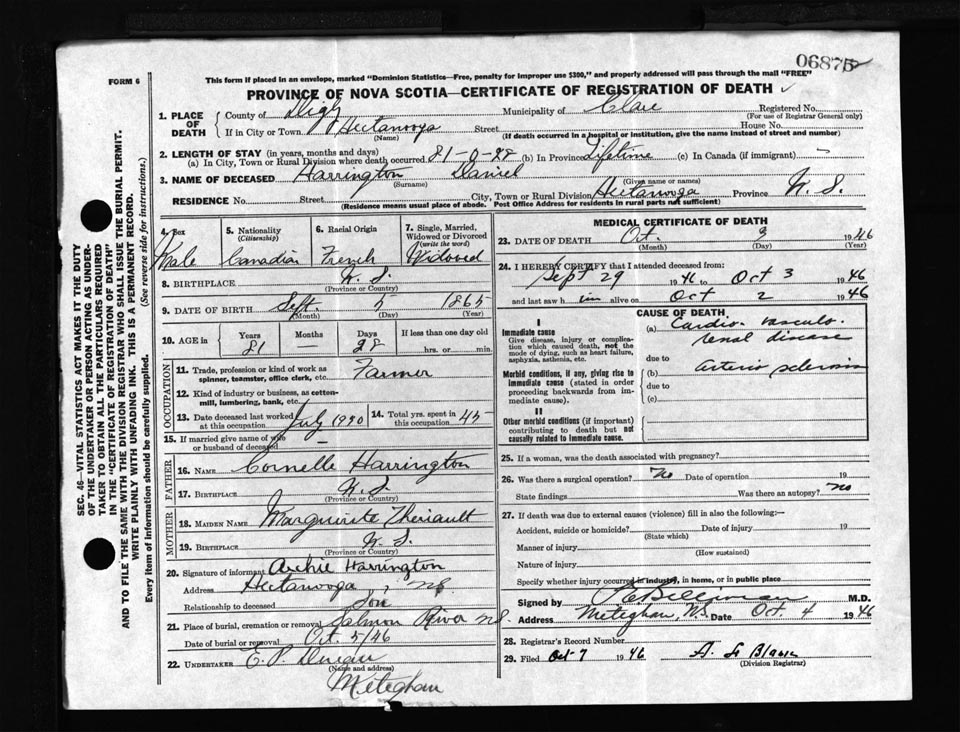 06875
FORM 6
This form if placed in an envelope, marked "Dominion Statistics—Free, penalty for improper use $300," and properly addressed will pass through the mail "FREE"
PROVINCE OF NOVA SCOTIA—CERTIFICATE OF REGISTRATION OF DEATH
1. PLACE OF DEATH
County of Digby Municipality of Clare Registered No.
(For use of Registrar General only)
If in City or Town Hectanooga Street House No.
(Name) (If death occurred in a hospital or institution, give the name instead of street and number)
2. LENGTH OF STAY (in years, months and days)
(a) In City, Town or Rural Division where death occurred 81-0-28 (b) In Province Lifetime (c) In Canada (if immigrant) —
3. NAME OF DECEASED Harrington Daniel
(Surname) (Given name or names)
RESIDENCE No. Street City, Town or Rural Division Hectanooga Province N. S.
(Residence means usual place of abode. Post Office Address for residents in rural parts not sufficient)
4. Sex 5. Nationality (Citizenship) 6. Racial Origin 7. Single, Married, Widowed or Divorced (write the word)
Male Canadian French Widowed
8. BIRTHPLACE N. S.
(Province or Country)
9. DATE OF BIRTH Sept. 5 1865
(Month) (Day) (Year)
10. AGE in Years Months Days If less than one day old
81 — 28 hrs. or min.
OCCUPATION
11. Trade, profession or kind of work as spinner, teamster, office clerk, etc. Farmer
12. Kind of industry or business, as cotton-mill, lumbering, bank, etc.
13. Date deceased last worked at this occupation July 1930 14. Total yrs. spent in this occupation 45
15. If married give name of wife or husband of deceased —
FATHER
16. NAME Cornelle Harrington
17. BIRTHPLACE N. S.
(Province or Country)
MOTHER
18. MAIDEN NAME Marguirite Theriault
19. BIRTHPLACE N. S.
(Province or Country)
20. Signature of informant Archie Harrington
Address Hectanooga, NS.
Relationship to deceased Son
21. Place of burial, cremation or removal Salmon River NS.
Date of burial or removal Oct. 5/46
22. UNDERTAKER E. P.
(Name and address)
Meteghan
MEDICAL CERTIFICATE OF DEATH
23. DATE OF DEATH Oct. 3 1946
(Month) (Day) (Year)
24. I HEREBY CERTIFY that I attended deceased from:
Sept 29 1946 to Oct 3 1946
and last saw h im alive on Oct 2 1946
CAUSE OF DEATH
I
Immediate cause
Give disease, injury or complication which caused death, not the mode of dying, such as heart failure, asphyxia, asthenia, etc.
(a) Cardio-vasculo-
renal disease
due to
Morbid conditions, if any, giving rise to immediate cause (stated in order proceeding backwards from immediate cause).
(b) arterio sclerosis
due to
(c)
II
Other morbid conditions (if important) contributing to death but not causally related to immediate cause.
25. If a woman, was the death associated with pregnancy?
26. Was there a surgical operation? No Date of operation 19
State findings Was there an autopsy? No
27. If death was due to external causes (violence) fill in also the following:—
Accident, suicide or homicide? Date of injury 19
(State which)
Manner of injury
(How sustained)
Nature of injury
Specify whether injury occurred in industry, in home, or in public place
Signed by M.D.
Address Meteghan, N.S. Date Oct. 4 1946
28. Registrar's Record Number
29. Filed Oct 7 1946
(Division Registrar)
SEC. 46—VITAL STATISTICS ACT MAKES IT THE DUTY
OF THE UNDERTAKER OR PERSON ACTING AS UNDER-
TAKER TO OBTAIN ALL THE PARTICULARS REQUIRED
IN THE "CERTIFICATE OF REGISTRATION OF DEATH"
AND TO FILE THE SAME WITH THE DIVISION REGISTRAR WHO SHALL ISSUE THE BURIAL PERMIT.
WRITE PLAINLY WITH UNFADING INK. THIS IS A PERMANENT RECORD.
Every item of information should be carefully supplied. (See reverse side for instructions.)